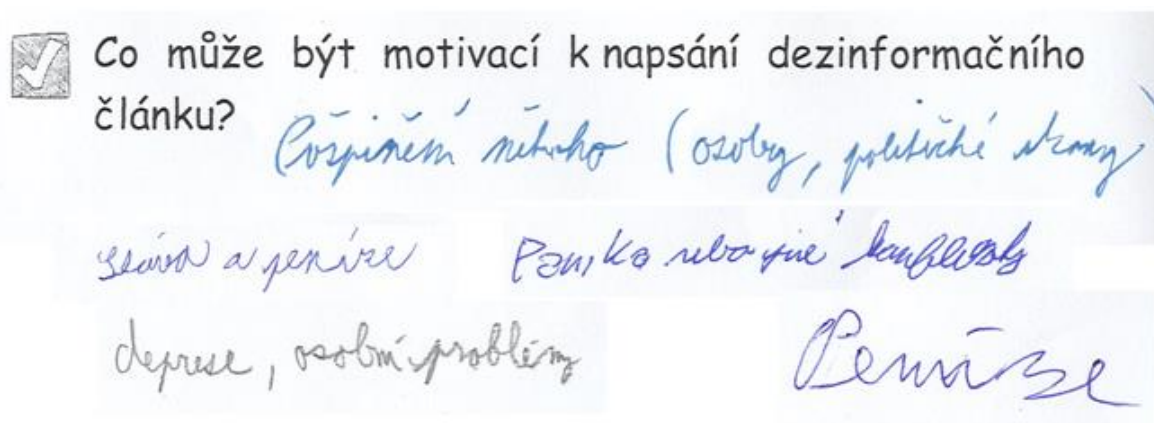 Co může být motivací k napsání dezinformačního
článku?
Pošpinění někoho (osoby, politické strany)
sláva a peníze
Panika nebo jiné konflikty
deprese, osobní problémy
Peníze